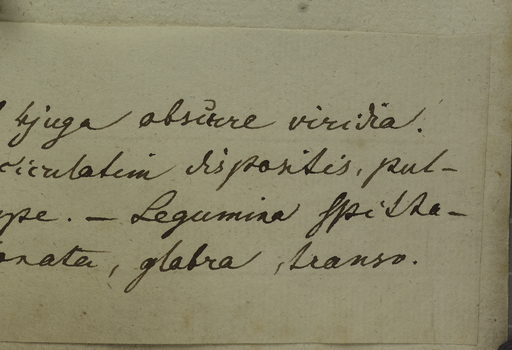 4juga obscure viridia.
ciculatim dispositis, pul-
ype. — Legumina spitha-
onata, glabra, transv.